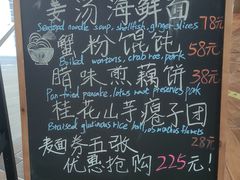 姜汤海鲜面
Seafood noodle soup, shellfish, ginger slices 78元
蟹粉馄饨 58元
Boiled wontons, crab roe, pork
腊味煎藕饼 38元
Pan-fried pancake, lotus root, preserves pork
桂花山芋瘪子团
Braised glutinous rice ball, osmanthus flowers
28元
面券五张
优惠抢购225元!